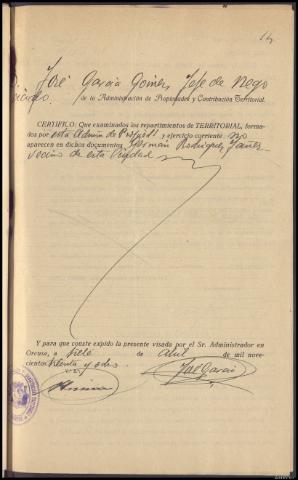 14
José García Gómez, Jefe de Nego
ciado. de la Administración de Propiedades y Contribución Territorial.
CERTIFICO: Que examinados los repartimientos de TERRITORIAL, forma-
dos por esta Admón de y ejercicio corriente no
aparecen en dichos documentos Germán Rodríguez Yañez
vecino de esta Ciudad
Y para que conste expido la presente visada por el Sr. Administrador en
Orense, a siete de Abril de mil nove-
cientos treinta y ocho.
José García